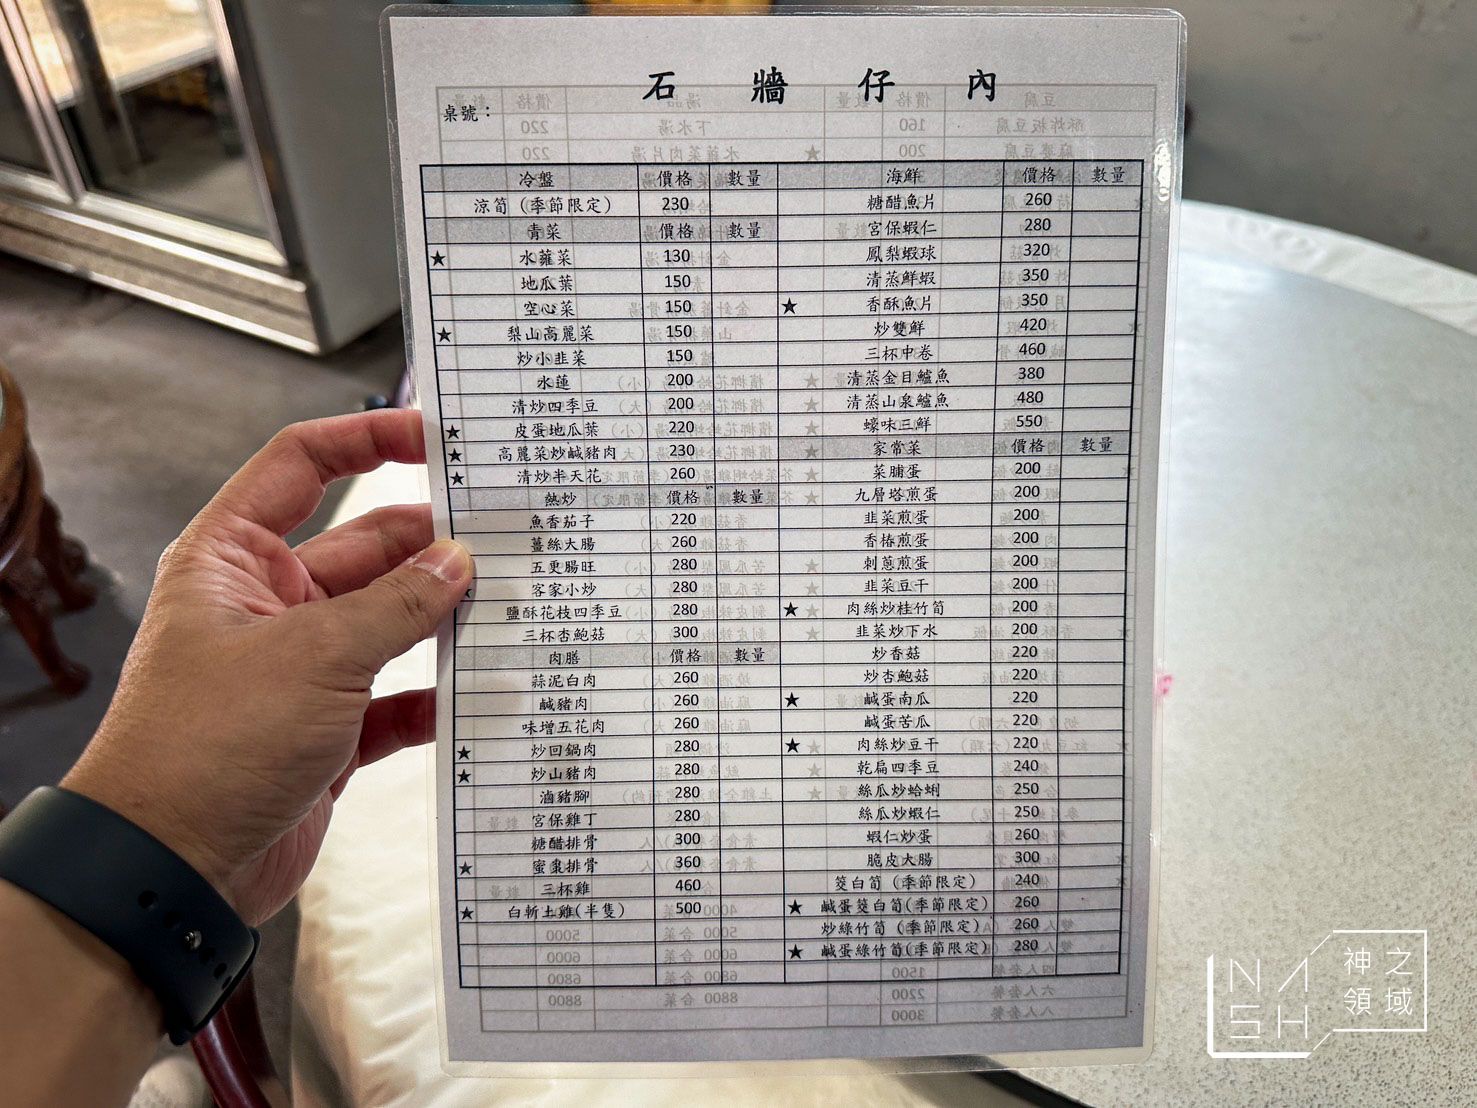 石牆仔內
桌號：
冷盤 價格 數量
涼筍（季節限定） 230
青菜 價格 數量
★ 水蕹菜 130
地瓜葉 150
空心菜 150
★ 梨山高麗菜 150
炒小韭菜 150
水蓮 200
清炒四季豆 200
★ 皮蛋地瓜葉 220
★ 高麗菜炒鹹豬肉 230
★ 清炒半天花 260
熱炒 價格 數量
魚香茄子 220
薑絲大腸 260
五更腸旺 280
★ 客家小炒 280
鹽酥花枝四季豆 280
三杯杏鮑菇 300
肉膳 價格 數量
蒜泥白肉 260
鹹豬肉 260
味增五花肉 260
★ 炒回鍋肉 280
★ 炒山豬肉 280
滷豬腳 280
宮保雞丁 280
糖醋排骨 300
★ 蜜棗排骨 360
三杯雞 460
★ 白斬土雞(半隻) 500
海鮮 價格 數量
糖醋魚片 260
宮保蝦仁 280
鳳梨蝦球 320
清蒸鮮蝦 350
★ 香酥魚片 350
炒雙鮮 420
三杯中卷 460
清蒸金目鱸魚 380
清蒸山泉鱸魚 480
蠔味三鮮 550
家常菜 價格 數量
菜脯蛋 200
九層塔煎蛋 200
韭菜煎蛋 200
香椿煎蛋 200
刺蔥煎蛋 200
韭菜豆干 200
★ 肉絲炒桂竹筍 200
韭菜炒下水 200
炒香菇 220
炒杏鮑菇 220
★ 鹹蛋南瓜 220
鹹蛋苦瓜 220
★ 肉絲炒豆干 220
乾扁四季豆 240
絲瓜炒蛤蜊 250
絲瓜炒蝦仁 250
蝦仁炒蛋 260
脆皮大腸 300
筊白筍（季節限定） 240
★ 鹹蛋筊白筍(季節限定) 260
炒綠竹筍（季節限定） 260
★ 鹹蛋綠竹筍(季節限定) 280
NASH
神之領域